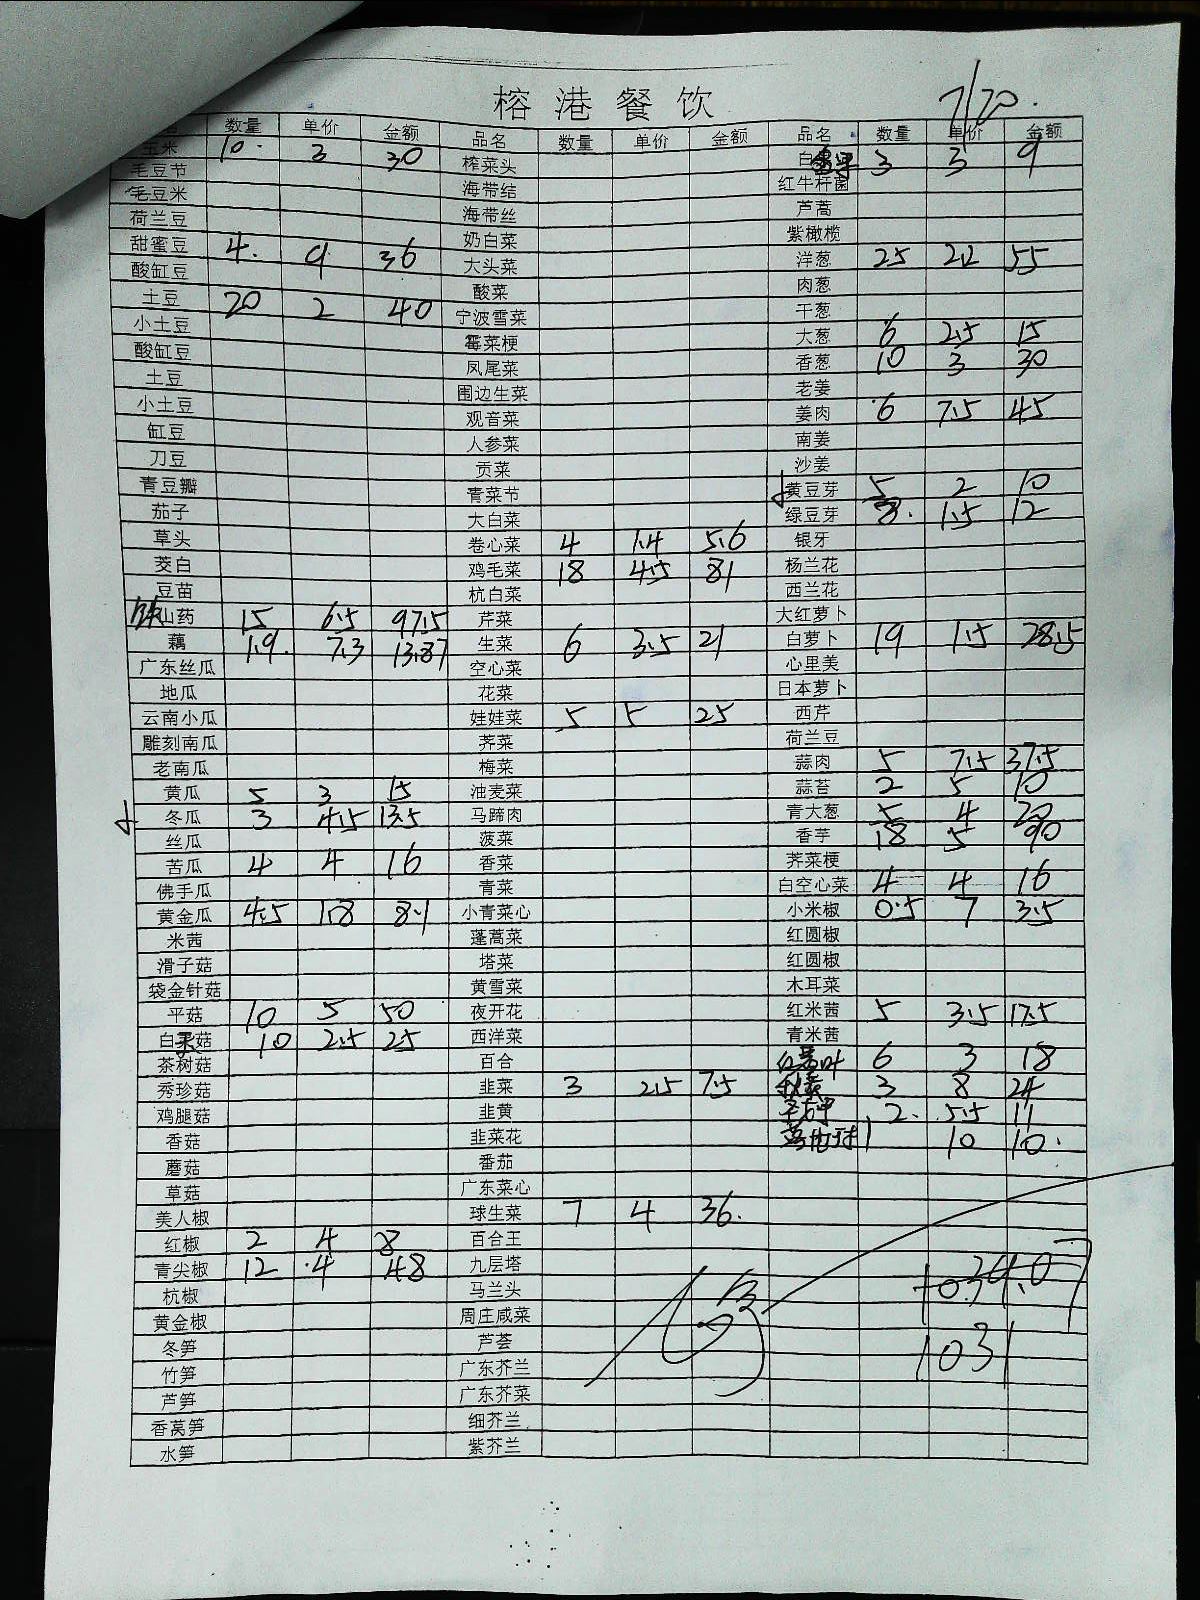 榕港餐饮
7/20.
数量 单价 金额 品名 数量 单价 金额 品名 数量 单价 金额
玉米 10. 3 30 榨菜头 白 3 3 9
毛豆节 海带结 红牛杆菌
毛豆米 海带丝 芦蒿
荷兰豆 奶白菜 紫橄榄
甜蜜豆 4. 9 36 大头菜 洋葱 25 2.2 55
酸缸豆 酸菜 肉葱
土豆 20 2 40 宁波雪菜 干葱
小土豆 霉菜梗 大葱 6 2.5 15
酸缸豆 凤尾菜 香葱 10 3 30
土豆 围边生菜 老姜
小土豆 观音菜 姜肉 6 7.5 45
缸豆 人参菜 南姜
刀豆 贡菜 沙姜
青豆瓣 青菜节 黄豆芽 5 2 10
茄子 大白菜 绿豆芽 8. 1.5 12
草头 卷心菜 4 1.4 5.6 银牙
茭白 鸡毛菜 18 4.5 81 杨兰花
豆苗 杭白菜 西兰花
铁山药 15 6.5 97.5 芹菜 大红萝卜
藕 1.9. 7.3 13.87 生菜 6 3.5 21 白萝卜 19 1.5 28.5
广东丝瓜 空心菜 心里美
地瓜 花菜 日本萝卜
云南小瓜 娃娃菜 5 5 25 西芹
雕刻南瓜 荠菜 荷兰豆
老南瓜 梅菜 蒜肉 5 7.5 37.5
黄瓜 5 3 15 油麦菜 蒜苔 2 5 10
冬瓜 3 4.5 13.5 马蹄肉 青大葱 5 4 20
丝瓜 菠菜 香芋 18 5 90
苦瓜 4 4 16 香菜 荠菜梗
佛手瓜 青菜 白空心菜 4 4 16
黄金瓜 4.5 1.8 8.1 小青菜心 小米椒 0.5 7 3.5
米茜 蓬蒿菜 红圆椒
滑子菇 塔菜 红圆椒
袋金针菇 黄雪菜 木耳菜
平菇 10 5 50 夜开花 红米茜 5 3.5 17.5
白菇 10 2.5 25 西洋菜 青米茜
茶树菇 百合 6 3 18
秀珍菇 韭菜 3 2.5 7.5 3 8 24
鸡腿菇 韭黄 2. 5.5 11
香菇 韭菜花 1 10 10.
蘑菇 番茄
草菇 广东菜心
美人椒 球生菜 7 4 36.
红椒 2 4 8 百合王
青尖椒 12 4 48 九层塔 1034.07
杭椒 马兰头
黄金椒 周庄咸菜
冬笋 芦荟 1031
竹笋 广东芥兰
芦笋 广东芥菜
香莴笋 细芥兰
水笋 紫芥兰